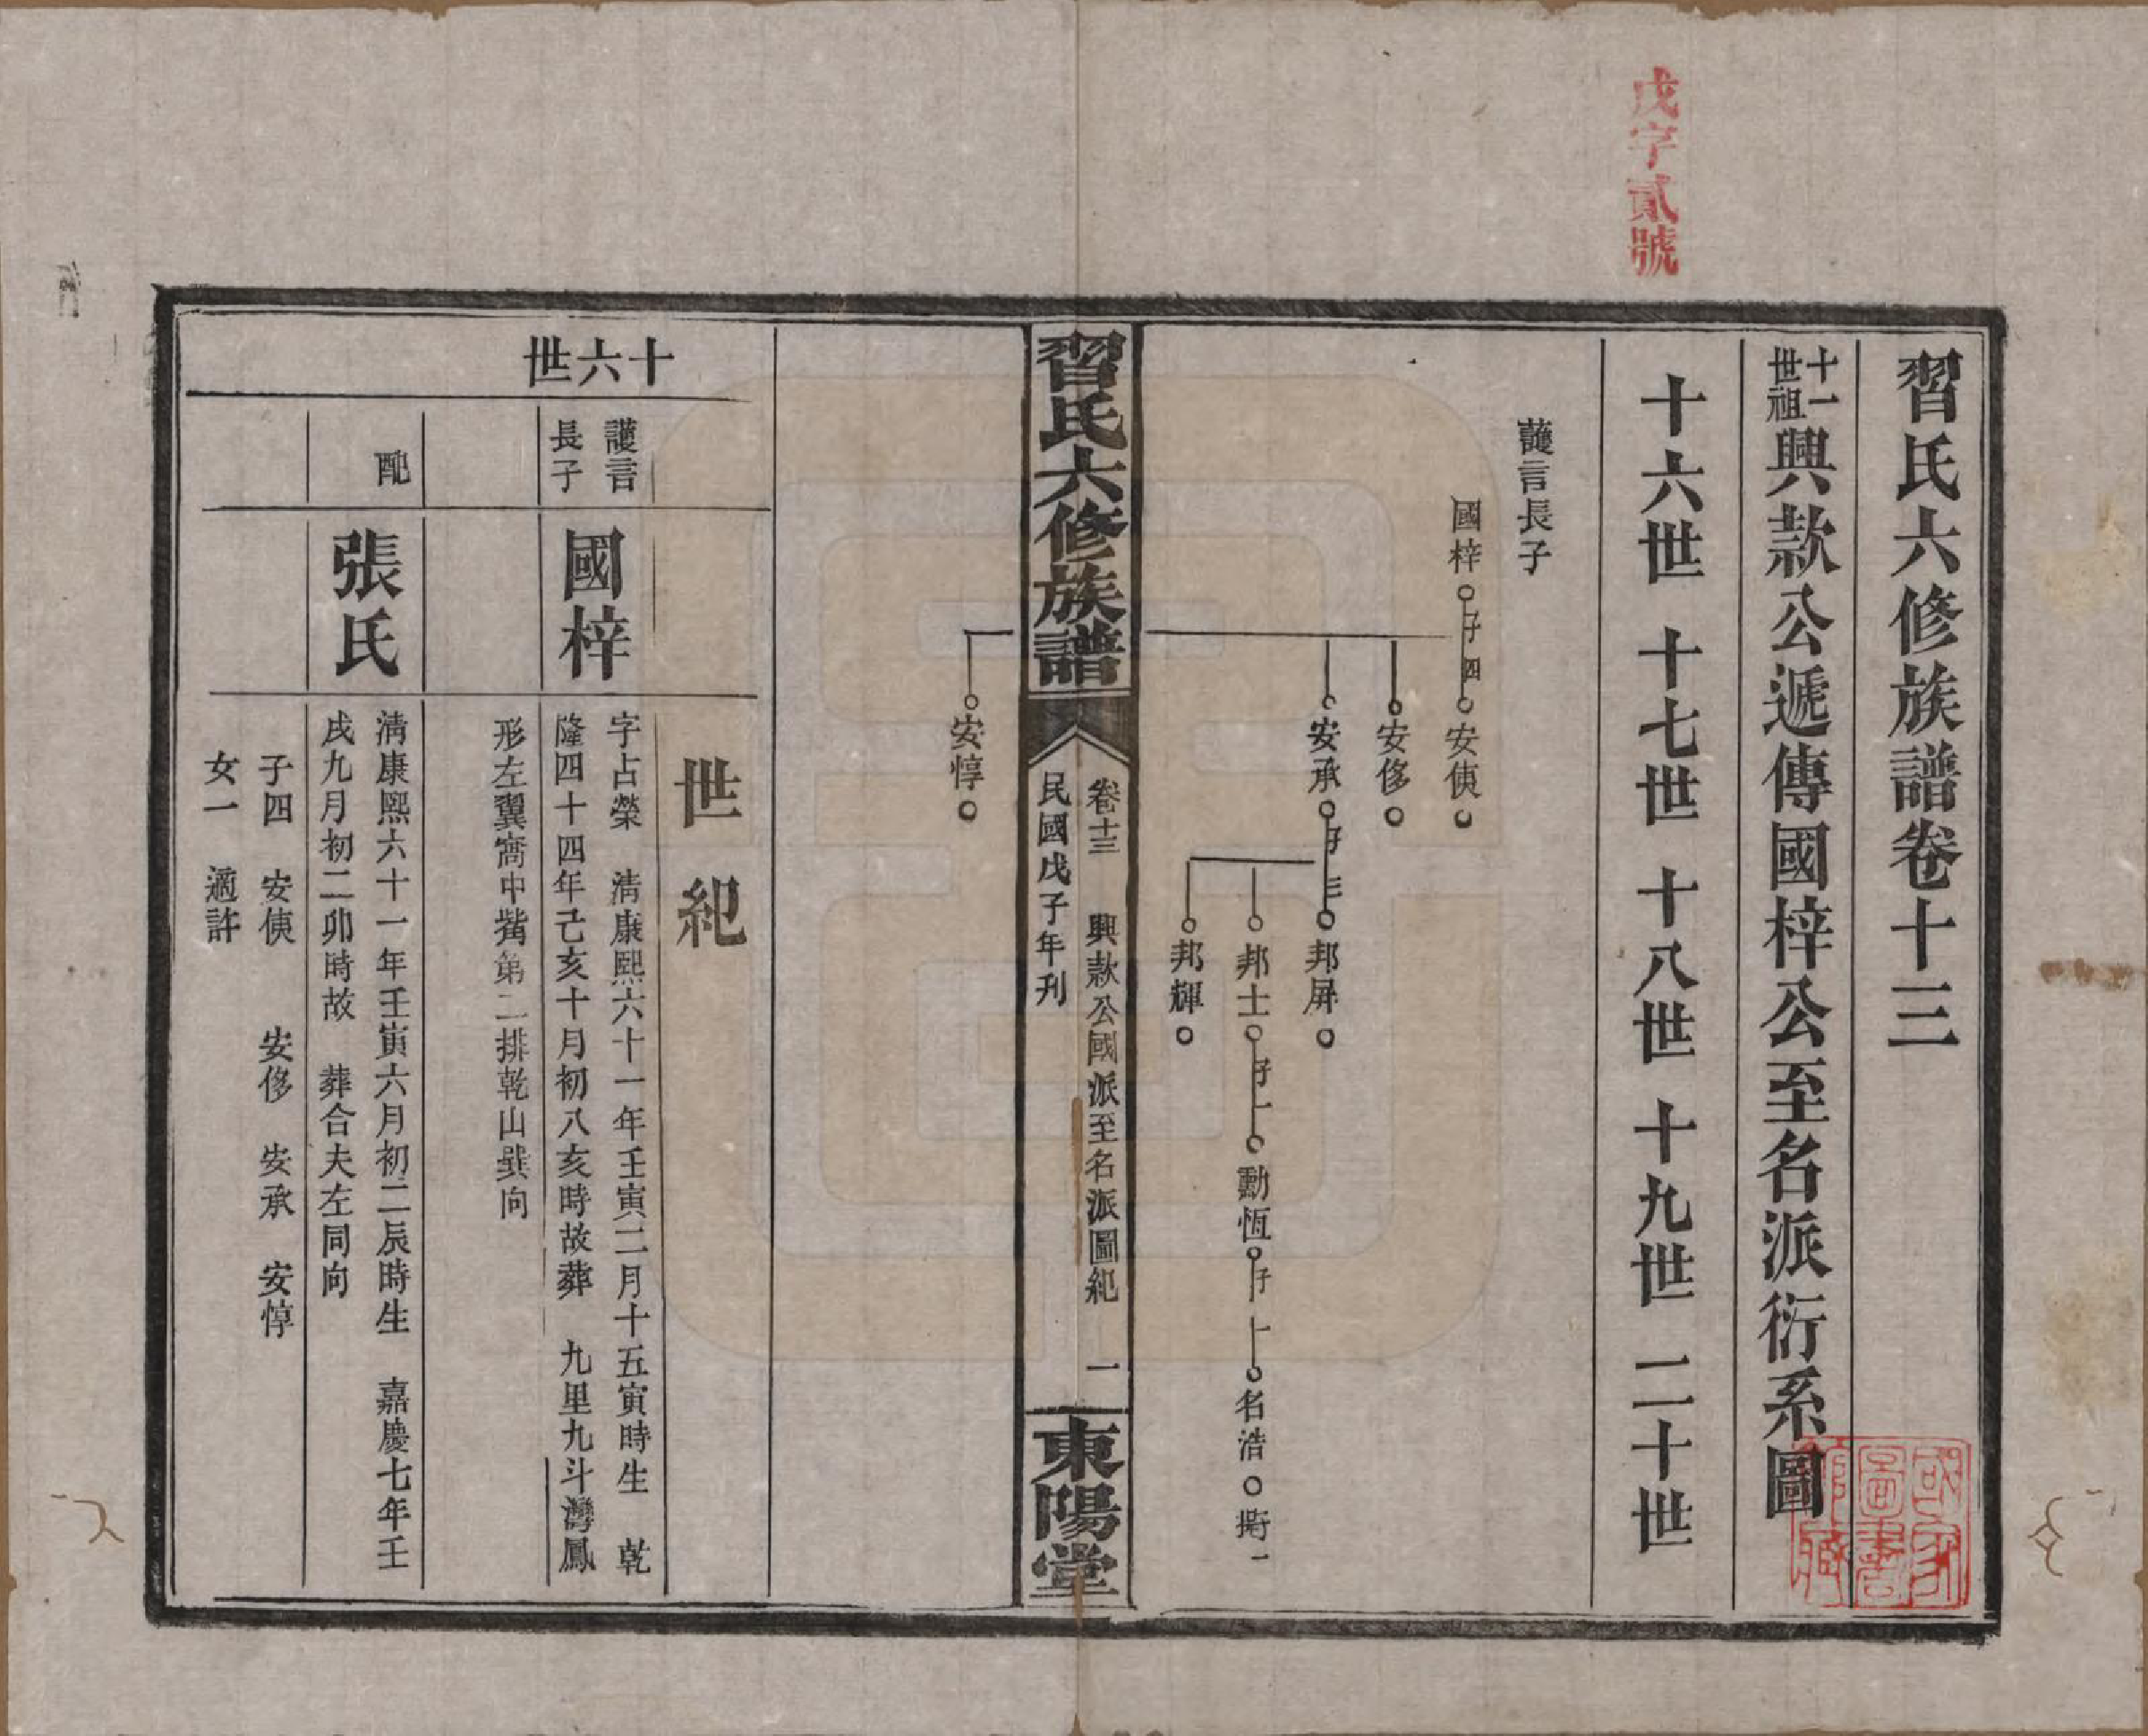 戊字貳號
習氏六修族譜卷十三
十一世祖興款公遞傳國梓公至名派衍系圖
十六世 十七世 十八世 十九世 二十世
護言長子
國梓 子四 安㑥
安侈
安承 子三 邦屏
邦士 子一 勳恆 子一 名浩 一
邦輝
習氏六修族譜
卷十三 興款公國派至名派圖紀 一
民國戊子年刊
東陽堂
安惇
世紀
十六世
護言長子
國梓
字占榮 清康熙六十一年壬寅二月十五寅時生 乾
隆四十四年己亥十月初八亥時故葬 九里九斗灣鳳
形左翼窩中觜第二排乾山巽向
配
張氏
清康熙六十一年壬寅六月初二辰時生 嘉慶七年壬
戌九月初二卯時故 葬合夫左同向
子四 安㑥 安侈 安承 安惇
女一 適許